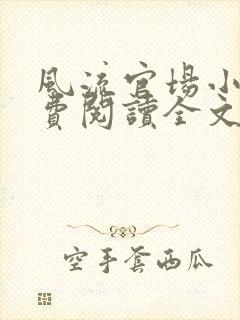 風流官場小
費閱讀全文
空手套西瓜